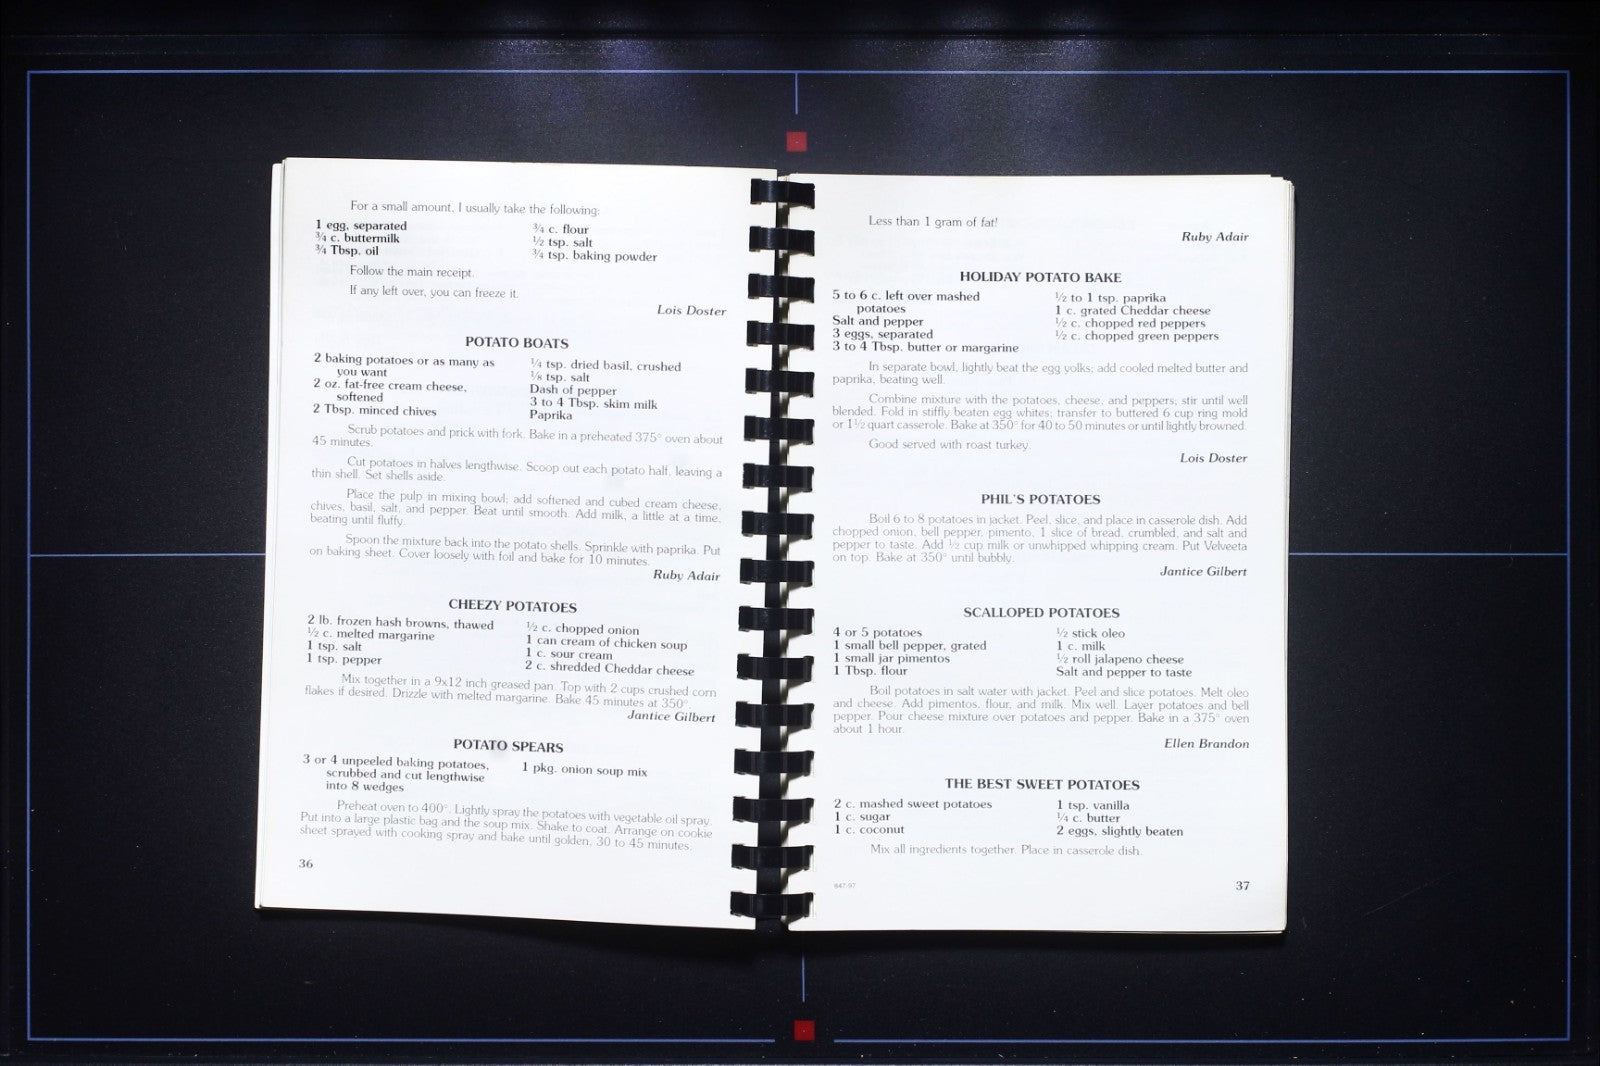 For a small amount, I usually take the following:
1 egg, separated
¾ c. buttermilk
¾ Tbsp. oil
¾ c. flour
½ tsp. salt
¾ tsp. baking powder
Follow the main receipt.
If any left over, you can freeze it.
Lois Doster
POTATO BOATS
2 baking potatoes or as many as
you want
2 oz. fat-free cream cheese,
softened
2 Tbsp. minced chives
¼ tsp. dried basil, crushed
⅛ tsp. salt
Dash of pepper
3 to 4 Tbsp. skim milk
Paprika
Scrub potatoes and prick with fork. Bake in a preheated 375° oven about
45 minutes.
Cut potatoes in halves lengthwise. Scoop out each potato half, leaving a
thin shell. Set shells aside.
Place the pulp in mixing bowl; add softened and cubed cream cheese,
chives, basil, salt, and pepper. Beat until smooth. Add milk, a little at a time,
beating until fluffy.
Spoon the mixture back into the potato shells. Sprinkle with paprika. Put
on baking sheet. Cover loosely with foil and bake for 10 minutes.
Ruby Adair
CHEEZY POTATOES
2 lb. frozen hash browns, thawed
½ c. melted margarine
1 tsp. salt
1 tsp. pepper
½ c. chopped onion
1 can cream of chicken soup
1 c. sour cream
2 c. shredded Cheddar cheese
Mix together in a 9x12 inch greased pan. Top with 2 cups crushed corn
flakes if desired. Drizzle with melted margarine. Bake 45 minutes at 350°.
Jantice Gilbert
POTATO SPEARS
3 or 4 unpeeled baking potatoes,
scrubbed and cut lengthwise
into 8 wedges
1 pkg. onion soup mix
Preheat oven to 400°. Lightly spray the potatoes with vegetable oil spray.
Put into a large plastic bag and the soup mix. Shake to coat. Arrange on cookie
sheet sprayed with cooking spray and bake until golden, 30 to 45 minutes.
36
Less than 1 gram of fat!
Ruby Adair
HOLIDAY POTATO BAKE
5 to 6 c. left over mashed
potatoes
Salt and pepper
3 eggs, separated
3 to 4 Tbsp. butter or margarine
½ to 1 tsp. paprika
1 c. grated Cheddar cheese
½ c. chopped red peppers
½ c. chopped green peppers
In separate bowl, lightly beat the egg yolks; add cooled melted butter and
paprika, beating well.
Combine mixture with the potatoes, cheese, and peppers; stir until well
blended. Fold in stiffly beaten egg whites; transfer to buttered 6 cup ring mold
or 1½ quart casserole. Bake at 350° for 40 to 50 minutes or until lightly browned.
Good served with roast turkey.
Lois Doster
PHIL'S POTATOES
Boil 6 to 8 potatoes in jacket. Peel, slice, and place in casserole dish. Add
chopped onion, bell pepper, pimento, 1 slice of bread, crumbled, and salt and
pepper to taste. Add ½ cup milk or unwhipped whipping cream. Put Velveeta
on top. Bake at 350° until bubbly.
Jantice Gilbert
SCALLOPED POTATOES
4 or 5 potatoes
1 small bell pepper, grated
1 small jar pimentos
1 Tbsp. flour
½ stick oleo
1 c. milk
½ roll jalapeno cheese
Salt and pepper to taste
Boil potatoes in salt water with jacket. Peel and slice potatoes. Melt oleo
and cheese. Add pimentos, flour, and milk. Mix well. Layer potatoes and bell
pepper. Pour cheese mixture over potatoes and pepper. Bake in a 375° oven
about 1 hour.
Ellen Brandon
THE BEST SWEET POTATOES
2 c. mashed sweet potatoes
1 c. sugar
1 c. coconut
1 tsp. vanilla
¼ c. butter
2 eggs, slightly beaten
Mix all ingredients together. Place in casserole dish.
847-97
37